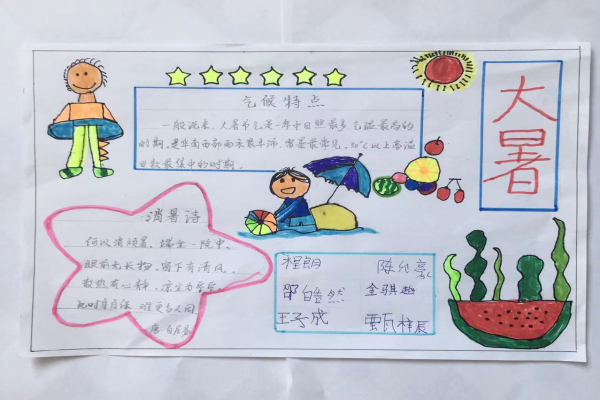 大暑
气候特点
一般说来，大暑节气是一年中日照最多气温最高的
时期，是华南西部雨水最丰沛、雷暴最常见、30℃以上高温
日数最集中的时期。
消暑诗
何以消烦暑，端坐一院中。
眼前无长物，窗下有清风。
散热有心静，凉生为室空。
此时身自保，难更与人同
唐 白居易
程朗
邵皓然
金骐趣
王子成
甄梓辰